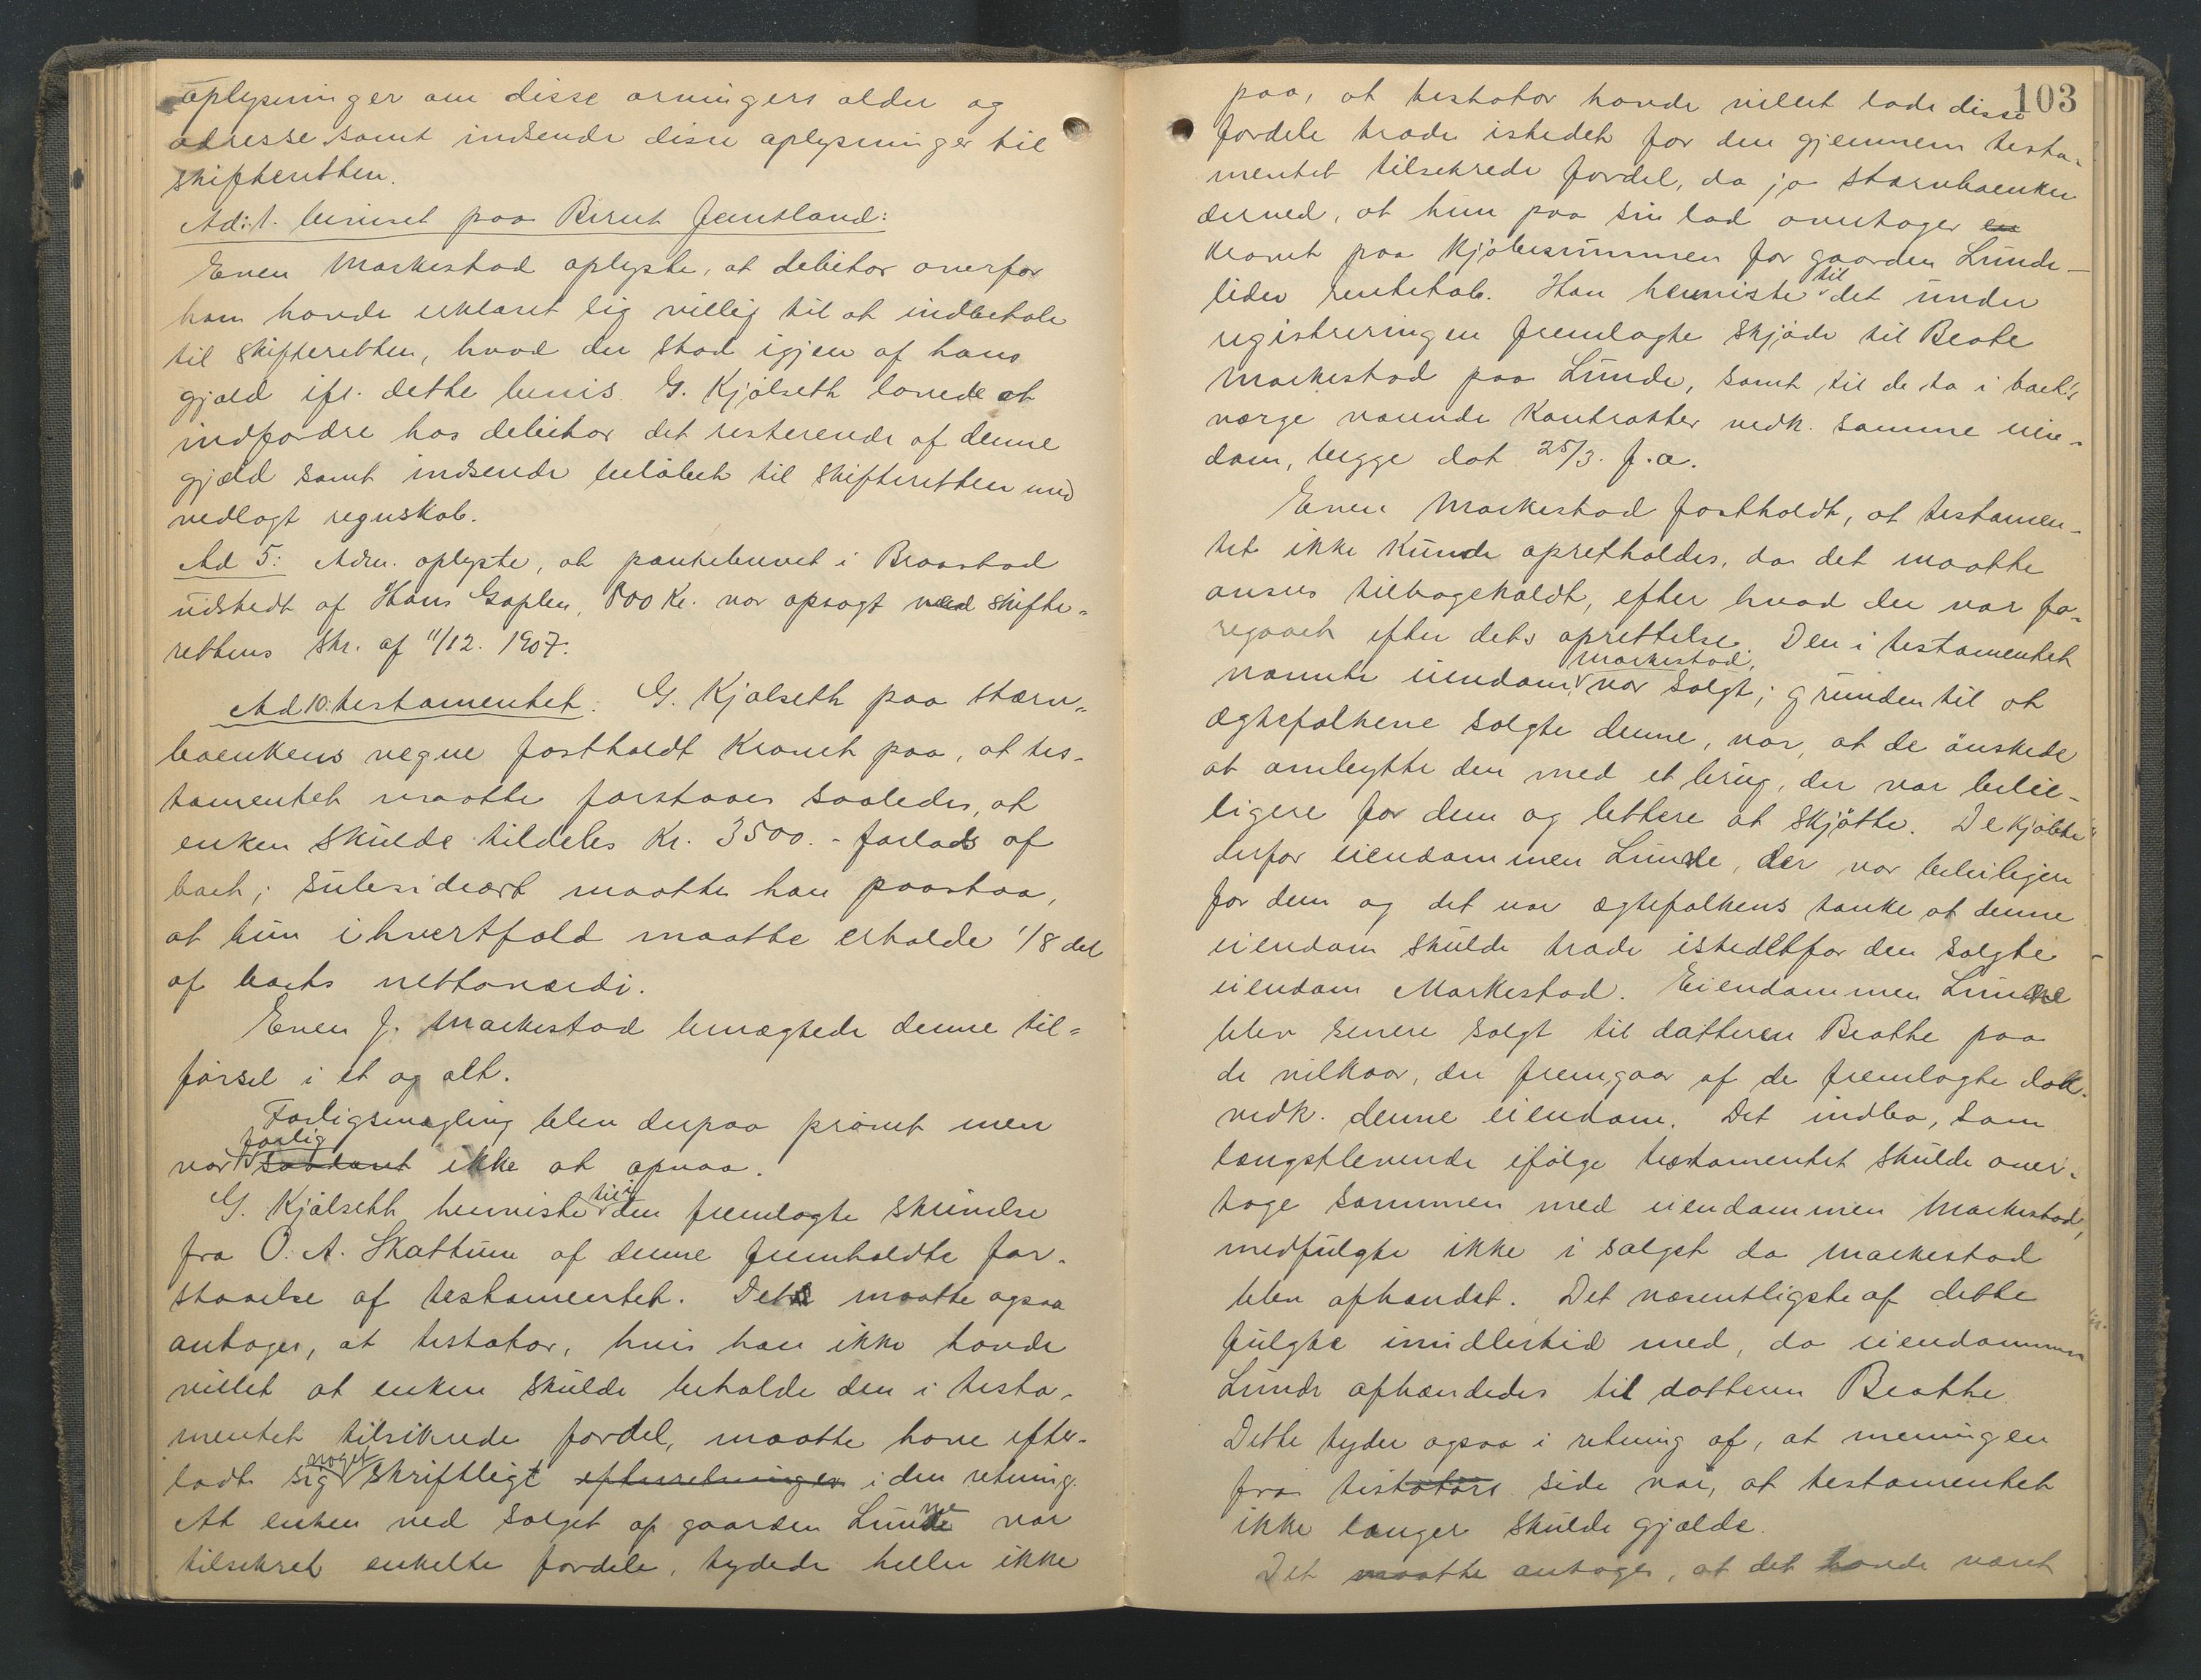 oplysninger om disse arvingers alder og
adresse samt indsende disse oplysninger til
skifteretten.
Ad: 1. beviset paa Bernt Jemtland:
Even Markestad oplyste, at debitor overfor
ham havde erklæret sig villig til at indbetale
til skifteretten, hvad der stod igjen af hans
gjæld ifl. dette bevis. G. Kjølseth lovede at
indfordre hos debitor det resterende af denne
gjæld samt indsende beløbet til skifteretten med
vedlagt regnskab.
Ad 5: Adm. oplyste, at pantebrevet i Braastad
udstedt af Hans Gaplen, 800 Kr. var opsagt ved skifte-
rettens skr. af 11/12. 1907.
Ad 10: testamentet: G. Kjølseth paa stærv-
boenkens vegne fastholdt kravet paa, at tes-
tamentet maatte forstaaes saaledes, at
enken skulde tildeles Kr. 3500.- forlods af
boet; subsidiært maatte han paastaa,
at hun i hvertfald maatte erholde 1/8 del
af boets nettoværdi.
Even J. Markestad benægtede denne til-
førsel i et og alt.
Forligsmægling blev derpaa prøvet men
var forlig saadant ikke at opnaa.
G. Kjølseth henviste til i den fremlagte skrivelse
fra O. A. Skattum af denne fremholdte for-
staaelse af testamentet. Det maatte ogsaa
antages, at testator, hvis han ikke havde
villet at enken skulde beholde den i testa-
mentet tilsikrede fordel, maatte have efter-
ladt sig noget skriftligt efterretninger i den retning.
At enken ved salget af gaarden Lunde var
tilsikret enkelte fordele, tydede heller ikke
103
paa, at testator havde villet lade disse
fordele træde istedet for den gjennem testa-
mentet tilsikrede fordel, da jo stærvboenken
derved, at hun paa sin lod overtager en
kravet paa kjøbesummen for gaarden Lunde-
lider rentetab. Han henviste til det under
registreringen fremlagte skjøde til Beate
Markestad paa Lunde, samt til de to i boets
værge værende kontrakter vedk. samme eien-
dom, begge dat 25/3. f.a.
Even Markestad fastholdt, at testamen-
tet ikke kunde opretholdes, da det maatte
ansees tilbagekaldt, efter hvad der var fo-
regaaet efter dets oprettelse. Den i testamentet
nævnte eiendom, Markestad, var solgt; grunden til at
ægtefolkene solgte denne, var, at de ønskede
at ombytte den med et brug, der var belei-
ligere for dem og lettere at skjøtte. De kjøbte
derfor eiendommen Lunde, der var beleiligere
for dem og det var ægtefolkens tanke at denne
eiendom skulde træde istedetfor den solgte
eiendom Markestad. Eiendommen Lunde
blev senere solgt til datteren Beathe paa
de vilkaar, der fremgaar af de fremlagte dok.
vedk. denne eiendom. Det indbo, som
længstlevende ifølge testamentet skulde over-
tage sammen med eiendommen Markestad,
medfulgte ikke i salget da Markestad
blev afhændet. Det væsentligste af dette
fulgte imidlertid med, da eiendommen
Lunde afhændedes til datteren Beathe.
Dette tyder ogsaa i retning af, at meningen
fra testators side var, at testamentet
ikke længer skulde gjælde.
Det maatte antages, at det havde været